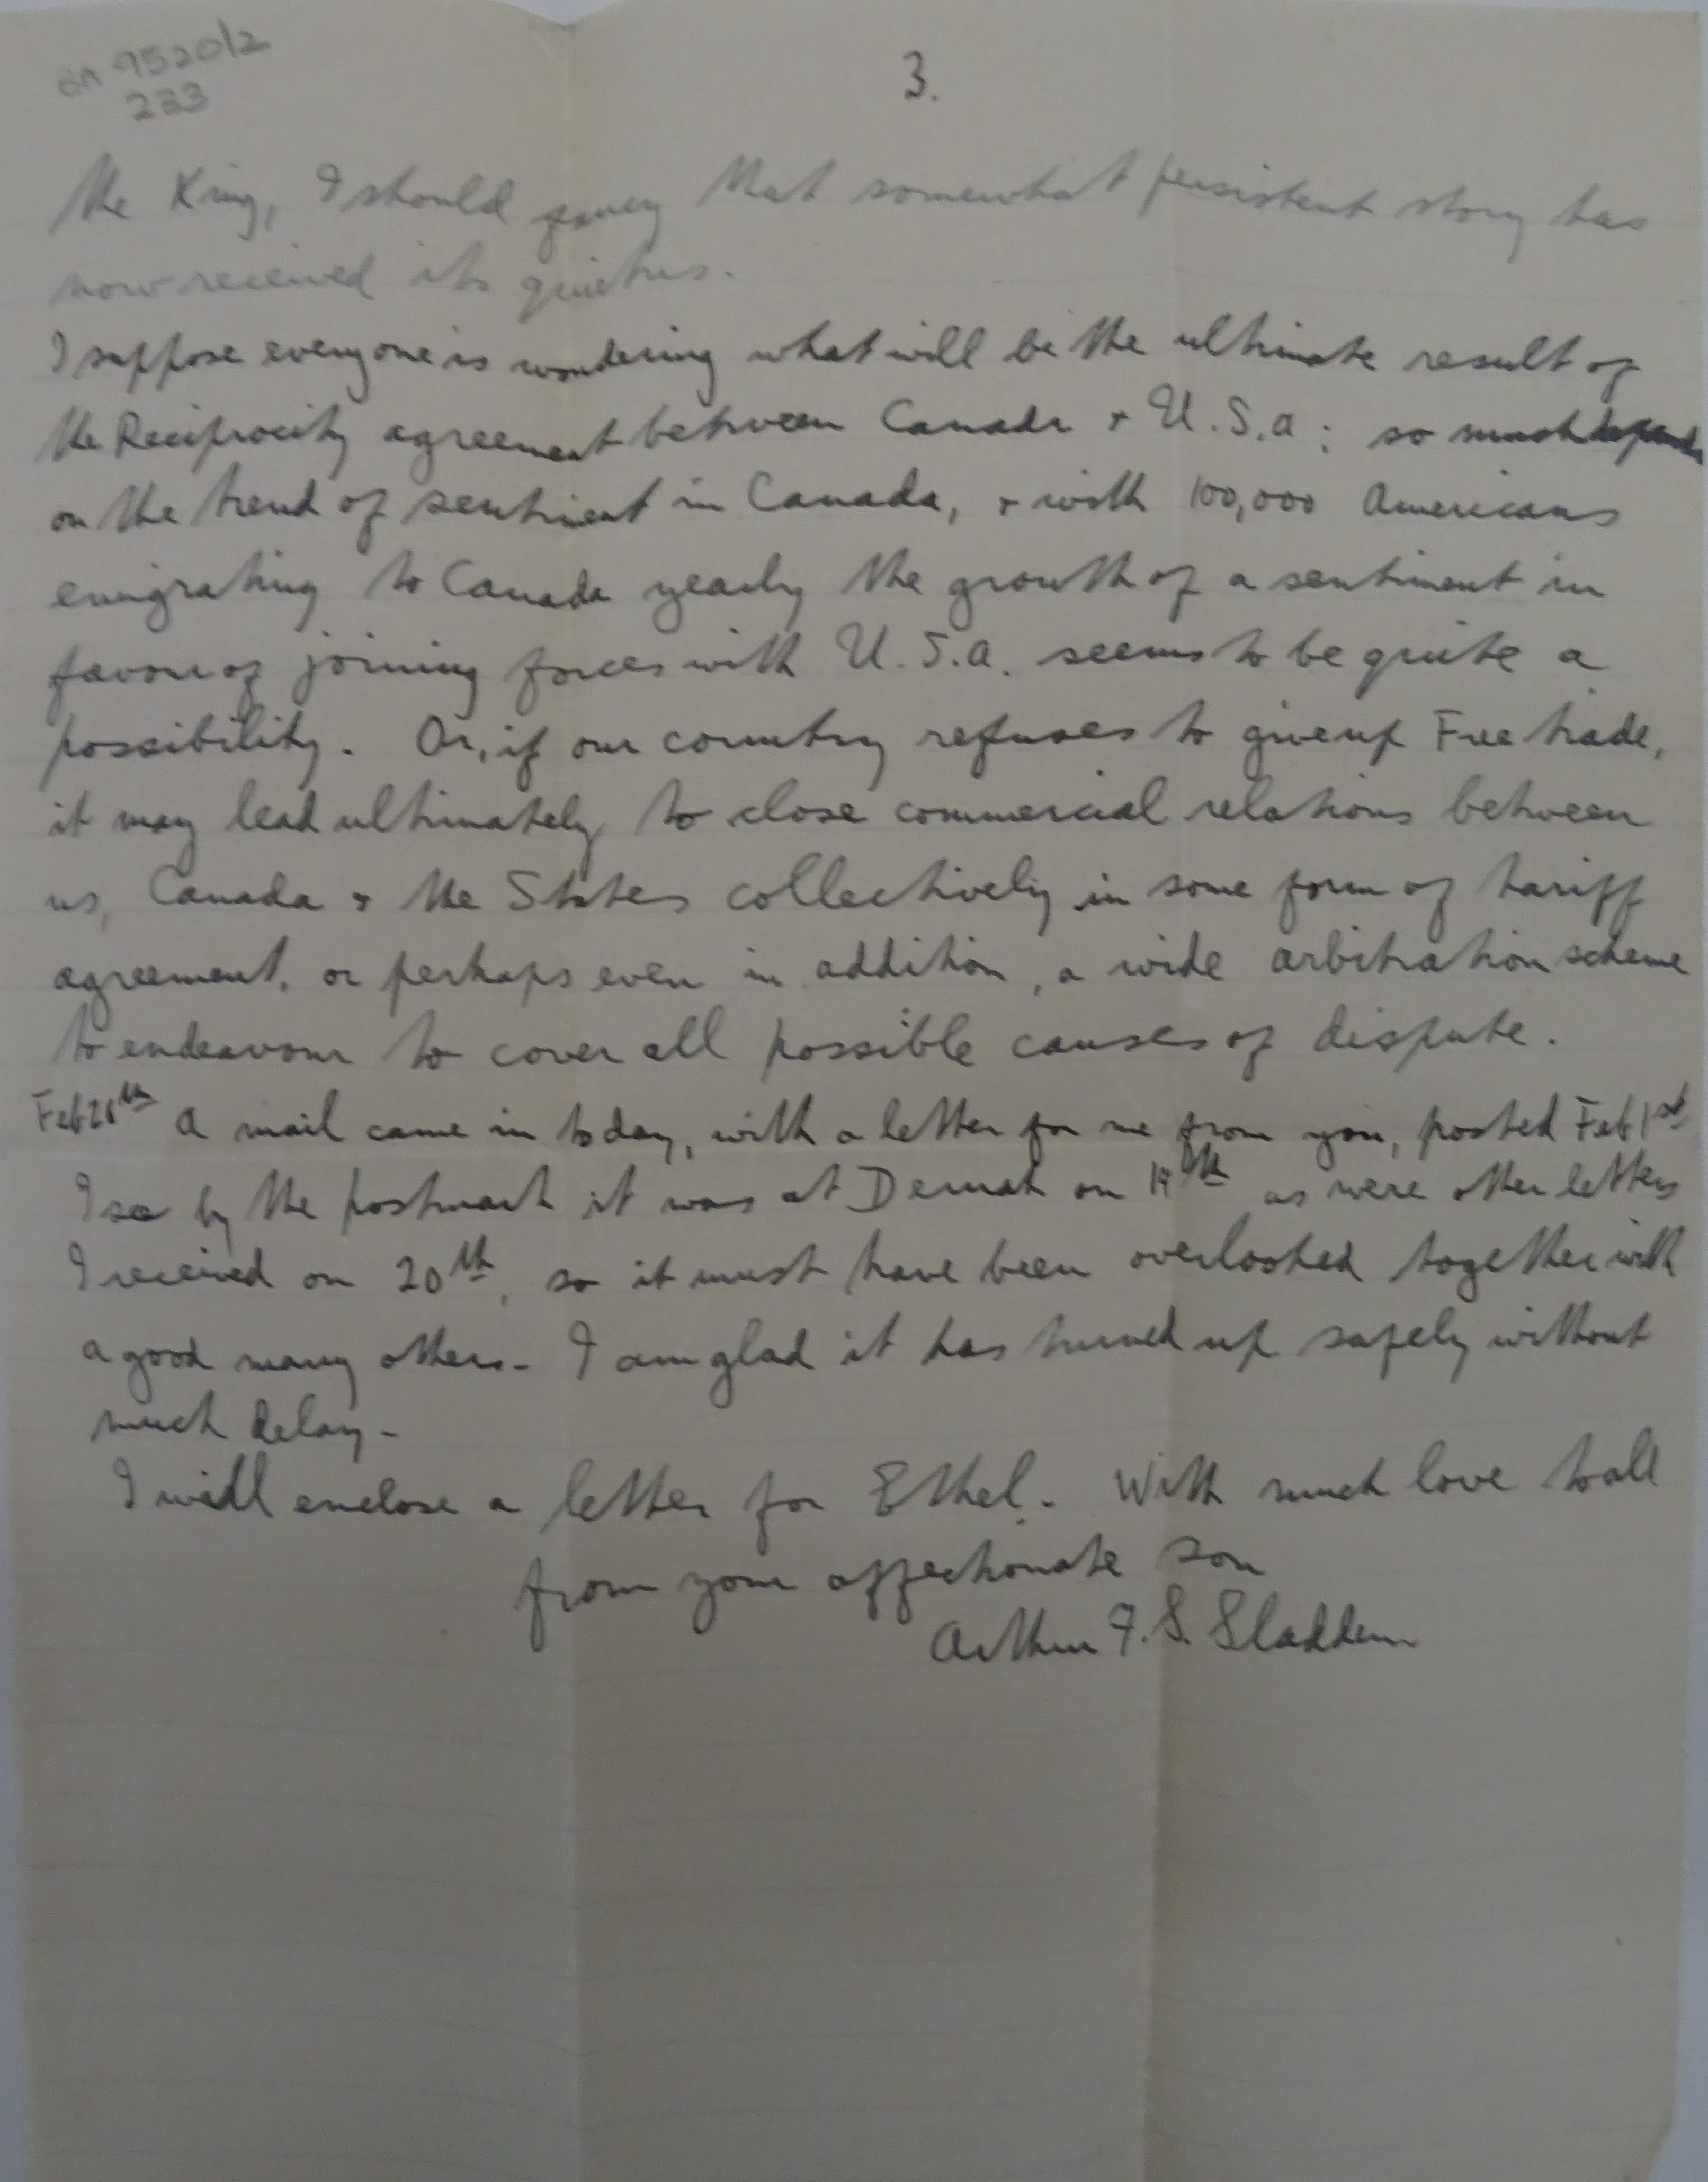 BA 9520/2
233
3.
the King, I should fancy that somewhat persistent story has
now received its quietus.
I suppose everyone is wondering what will be the ultimate result of
the Reciprocity agreement between Canada + U.S.A; so much depends
on the trend of sentiment in Canada, + with 100,000 Americans
emigrating to Canada yearly the growth of a sentiment in
favour of joining forces with U.S.A. seems to be quite a
possibility. Or, if our country refuses to give up Free trade,
it may lead ultimately to close commercial relations between
us, Canada + the States collectively in some form of tariff
agreement, or perhaps even in addition, a wide arbitration scheme
to endeavour to cover all possible causes of dispute.
Feb 26th A mail came in today, with a letter for me from you, posted Feb 1st
I see by the postmark it was at Dernah on 19th as were other letters
I received on 20th, so it must have been overlooked together with
a good many others - I am glad it has turned up safely without
much delay -
I will enclose a letter for Ethel. With much love to all
from your affectionate son
Arthur F. S. Sladden